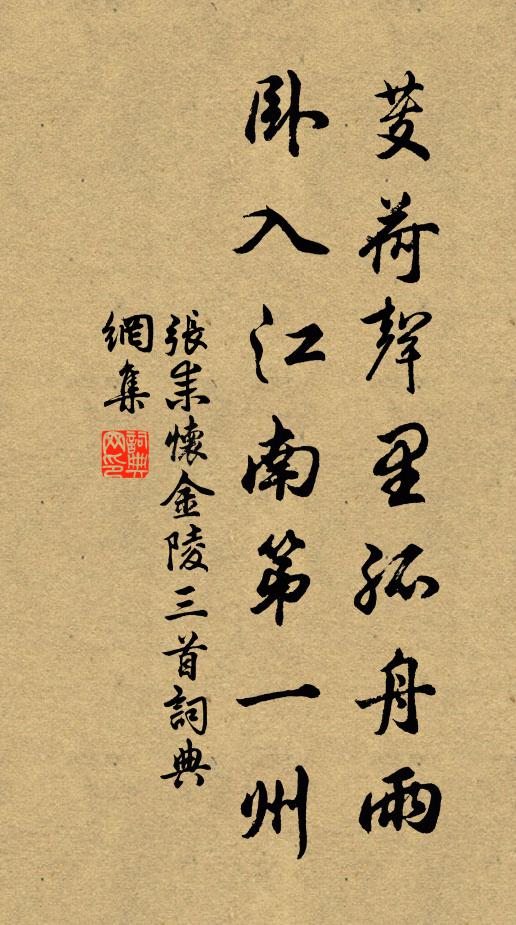 芰荷聲里孤舟雨
卧入江南第一州
張耒懷金陵三首詞典
網集
詞典
网印